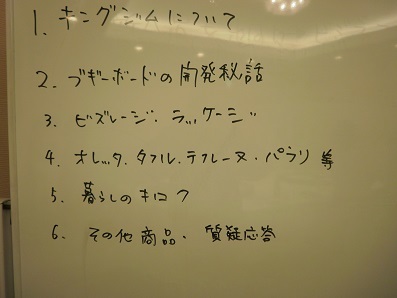 1. キングジムについて
2. ブギーボードの開発秘話
3. ビズレージ・ラッケージ
4. オレッタ、タフル、テフレーヌ・パラリ 等
5. 暮らしのキロク
6. その他商品・質疑応答